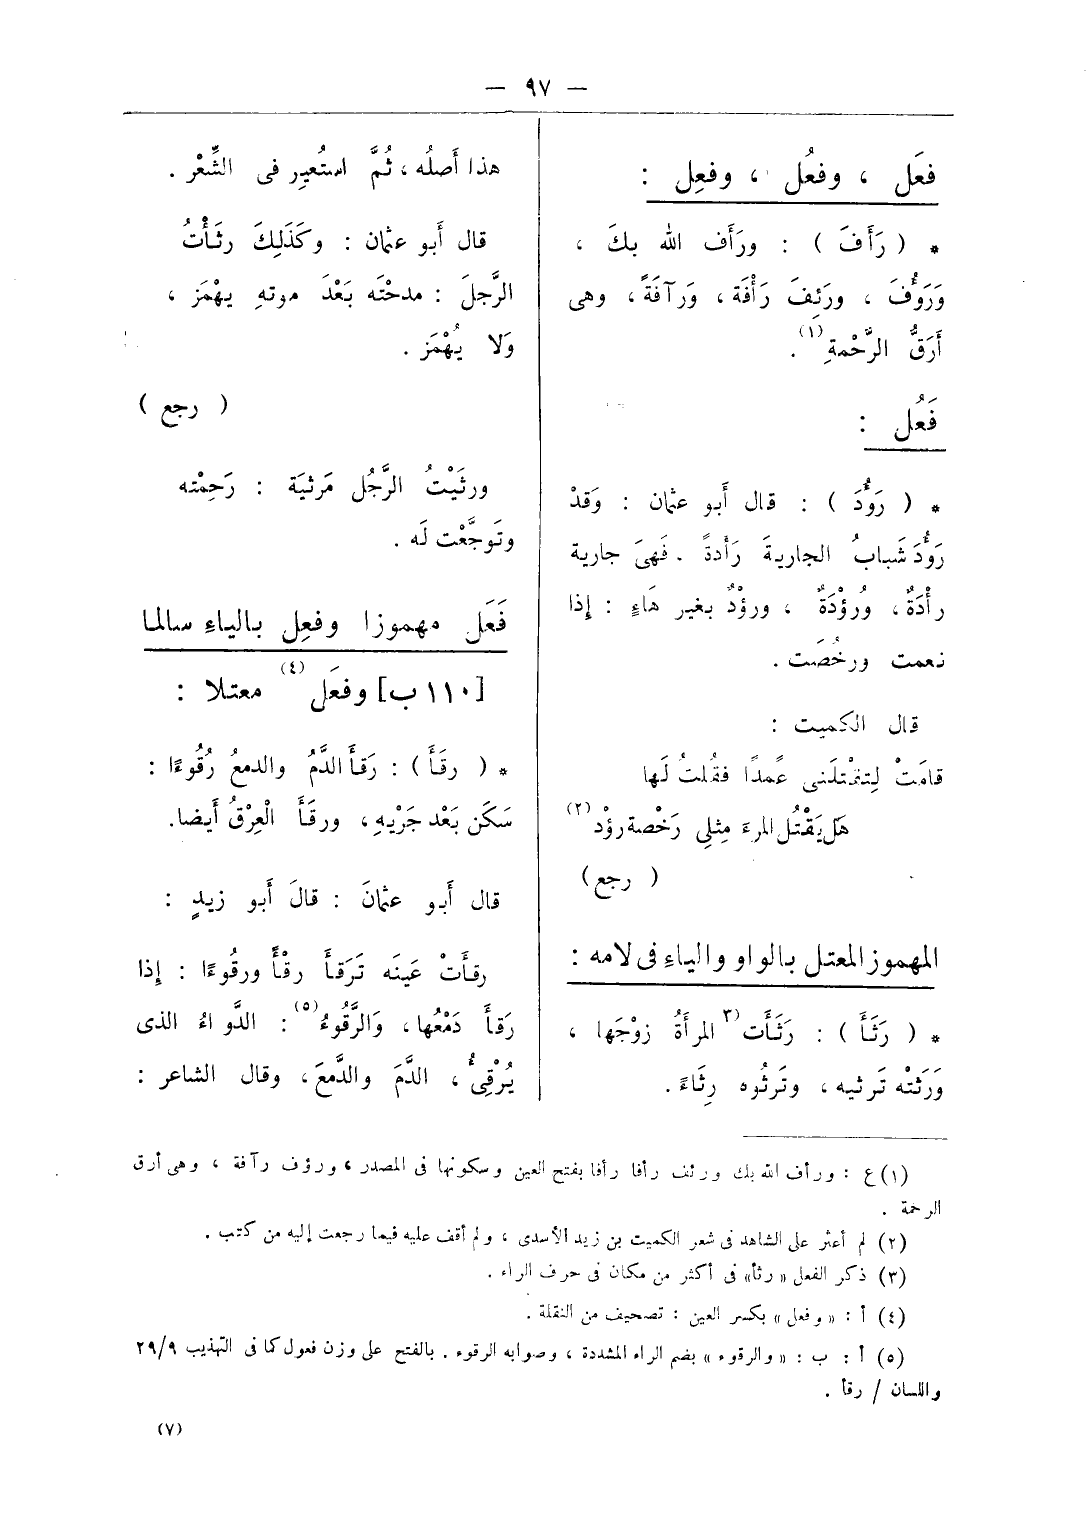 — ٩٧ —
فعَل ، وفعُل ، وفعِل :
* ( رَأَفَ ) : ورَأَف الله بكَ ،
وَرَؤُفَ ، ورَئِفَ رَأْفَة ، وَرَآفَةً ، وهى
أَرَقُّ الرَّحْمةِ(١) .
فَعُل :
* ( رَؤُدَ ) : قال أَبو عثمان : وَقدْ
رَؤُدَ شَبابُ الجاريةَ رَأْدةً . فَهىَ جارية
رأْدَةٌ ، ورُؤْدَةٌ ، ورؤْدٌ بغير هَاءٍ : إِذا
نعمت ورخُصَت .
قال الكميت :
قامَتْ لِتقْتلَنى عَمدًا فقُلتُ لَها
هَل يَقْتُل المرءَ مِثلِى رَخْصة رؤْد(٢)
( رجع )
المهموز المعتل بالواو والياءِ فى لامه :
* ( رَثَأَ ) : رَثَأَت(٣ المرأَةُ زوْجَها ،
وَرَثَتْه تَرثيه ، وتَرثُوه رِثَاءً .
هذا أَصلُه ، ثُمَّ استُعيِر فى الشِّعْر .
قال أَبو عثمان : وكَذَلِكَ رثَأْتُ
الرَّجلَ : مدحْتَه بَعْدَ موتهِ يهْمَز ،
وَلا يُهْمَز .
( رجع )
ورثَيْتُ الرَّجُل مَرثيَة : رَحِمْته
وتَوجَّعْت لَه .
فَعَل مهموزا وفعِل بالياءِ سالما
[١١٠ ب] وفعَل(٤) معتلا :
* ( رقَأَ ) : رَقأَ الدَّمُ والدمعُ رُقُوءًا :
سَكَن بَعْد جَرْيِهِ ، ورقَأَ الْعِرْقُ أَيضا.
قال أَبو عثمانَ : قالَ أَبو زيدٍ :
رقأَتْ عَينَه تَرَقأَ رقْأً ورقُوءًا : إِذا
رَقأَ دَمْعُها ، وَالرَّقُوءُ(٥) : الدَّواءُ الذى
يُرْقِىُٔ ، الدَّمَ والدَّمعَ ، وقال الشاعر :
(١) ع : ورأف الله بك ورئف رأفا رأفا بفتح العين وسكونها فى المصدر ، ورؤف رآفة ، وهى أرق
الرحمة .
(٢) لم أعثر على الشاهد فى شعر الكميت بن زيد الأسدى ، ولم أقف عليه فيما رجعت إليه من كتب .
(٣) ذكر الفعل « رثأ» فى أكثر من مكان فى حرف الراء .
(٤) أ : « وفعل » بكسر العين : تصحيف من النقلة .
(٥) أ : ب : « والرقوء » بضم الراء المشددة ، وصوابه الرقوء . بالفتح على وزن فعول كما فى التهذيب ٢٩/٩
واللسان / رقأ .
(٧)